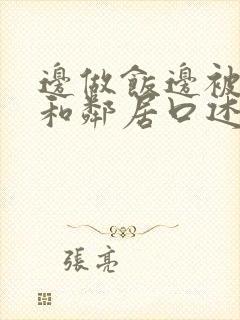 邊做飯邊被
和鄰居口述
張亮